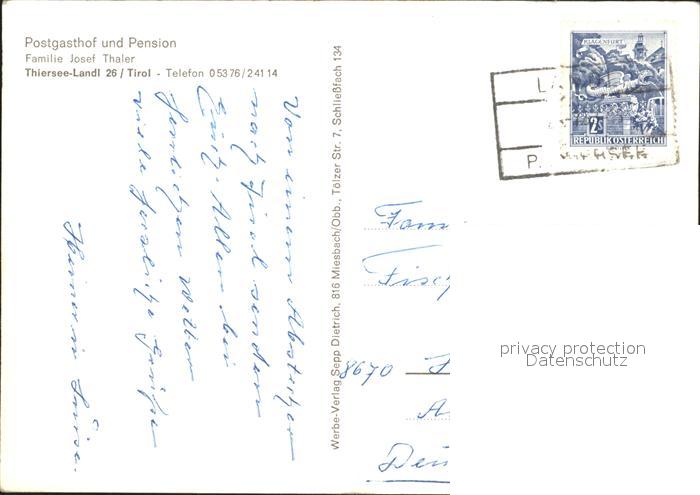 Postgasthof und Pension
Familie Josef Thaler
Thiersee-Landl 26 / Tirol - Telefon 05376/24114
Von einem Abstecher
nach Tirol senden
Euch Allen bei
herrlichem Wetter
viele herzliche Grüße
Heiner u. Luise.
Werbe-Verlag Sepp Dietrich, 816 Miesbach/Obb., Tölzer Str. 7, Schließfach 134
KLAGENFURT
2S
REPUBLIK ÖSTERREICH
Fam
Fisch
8670
Deu
privacy protection
Datenschutz